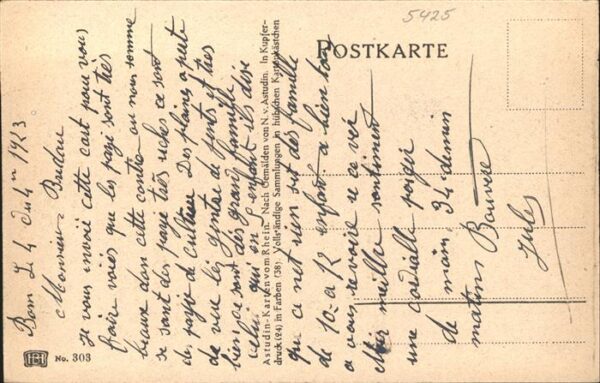 5425
POSTKARTE
Bonn Le 4 du 4 m 1923
Monsieur
je vous envoié cette cart pour vous
faire voiés que les payé sont très
beaux dan cette contré ou nous somme
se sont des payé très riches ce sont
des payé de culture Des plaines a perte
de vue les gentes de sents et très
bien ce sont dés grand famille
celui qui en enfant ils dise
que ca net rien sut des famille
de 10 a 12 enfant a bien ton
a vous revoire et ce voi
Mir meille sentiment
une cordialle poigné
de main 94 demin
matins
Jules
Astudin-Karten vom Rhein. Nach Gemälden von N. v. Astudin. In Kupfer-
druck (24) in Farben (38). Vollständige Sammlungen in hübschen Kartenkästchen
No. 303